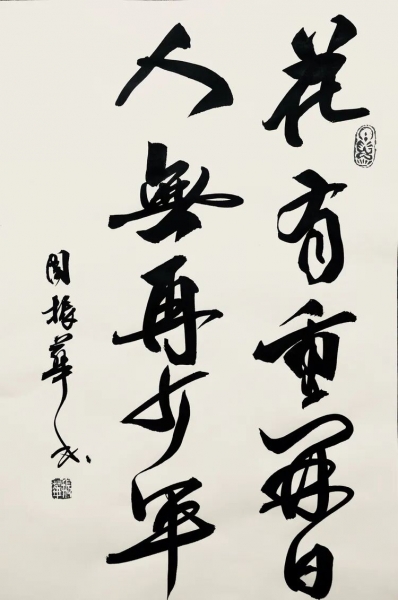 花有重開日
人無再少年
周振華